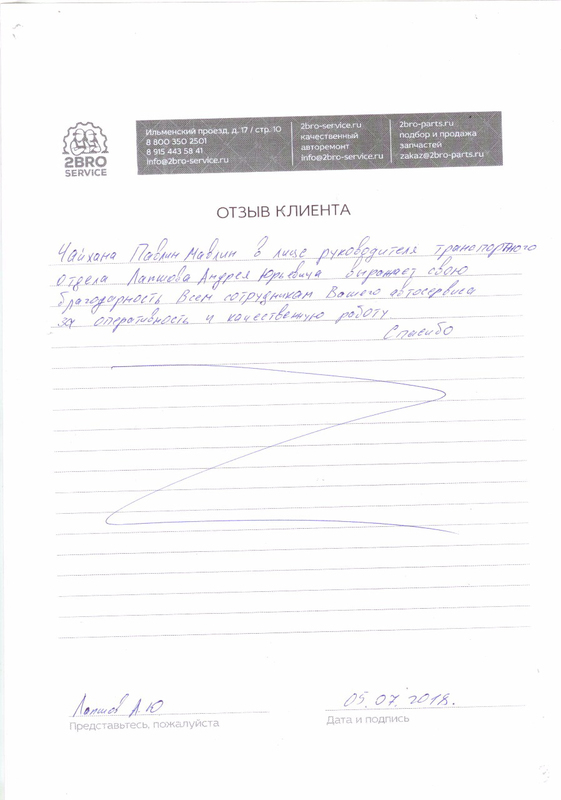 2BRO
SERVICE
Ильменский проезд, д. 17 / стр. 10
8 800 350 2501
8 915 443 58 41
info@2bro-service.ru
2bro-service.ru
качественный
авторемонт
info@2bro-service.ru
2bro-parts.ru
подбор и продажа
запчастей
zakaz@2bro-parts.ru
ОТЗЫВ КЛИЕНТА
Чайхана Павлин Мавлин в лице руководителя транспортного
отдела Лапшова Андрея Юрьевича выражает свою
благодарность Всем сотрудникам Вашего автосервиса
за оперативность и качественную работу.
Спасибо
Лапшов А.Ю
05.07.2018.
Представьтесь, пожалуйста
Дата и подпись